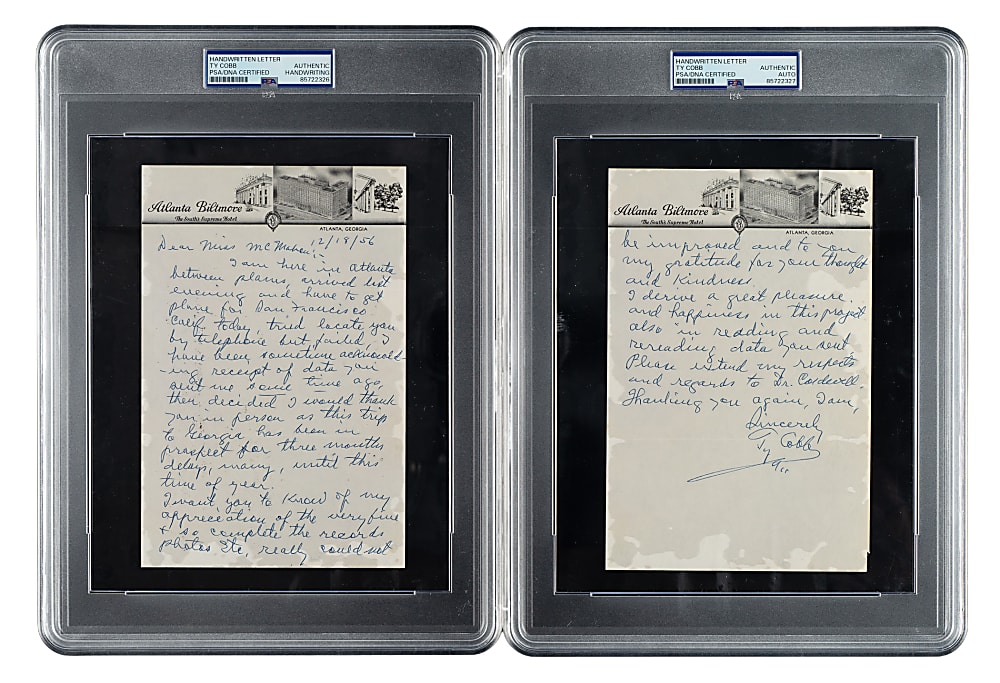 HANDWRITTEN LETTER
TY COBB AUTHENTIC
PSA/DNA CERTIFIED HANDWRITING
85722326
PSA
Atlanta Biltmore
The South's Supreme Hotel
ATLANTA, GEORGIA
Dear Miss McMahen:- 12/18/56
I am here in Atlanta
between planes, arrived last
evening and have to get
plane for San Francisco
Calif. today, tried locate you
by telephone but failed, I
have been sometime acknowled-
-ing receipt of data you
sent me some time ago,
then decided I would thank
you in person as this trip
to Georgia has been in
prospect for three months
delays, many, until this
time of year.
I want you to know of my
appreciation of the very fine
+ so complete the records
photos etc, really could not
HANDWRITTEN LETTER
TY COBB AUTHENTIC
PSA/DNA CERTIFIED AUTO
85722327
PSA
Atlanta Biltmore
The South's Supreme Hotel
ATLANTA, GEORGIA
be improved and to you
my gratitude for your thought
and kindness.
I derive a great pleasure
and happiness in this project
also in reading and
rereading data you sent
Please extend my respects
and regards to Dr. Caldwell.
Thanking you again, I am,
Sincerely
Ty Cobb